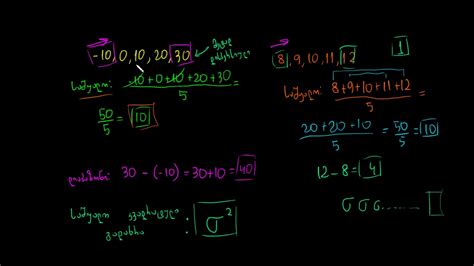 -10, 0, 10, 20, 30
საშუალო: -10+0+10+20+30
5
50
5 = 10
დიაპაზონი: 30 - (-10) = 30+10 = 40
საშუალო კვადრატული
გადახრა : σ²
8, 9, 10, 11, 12
1
საშუალო: 8+9+10+11+12
5
20+20+10
5 = 50
5 = 10
12-8 = 4
σ σ σ........